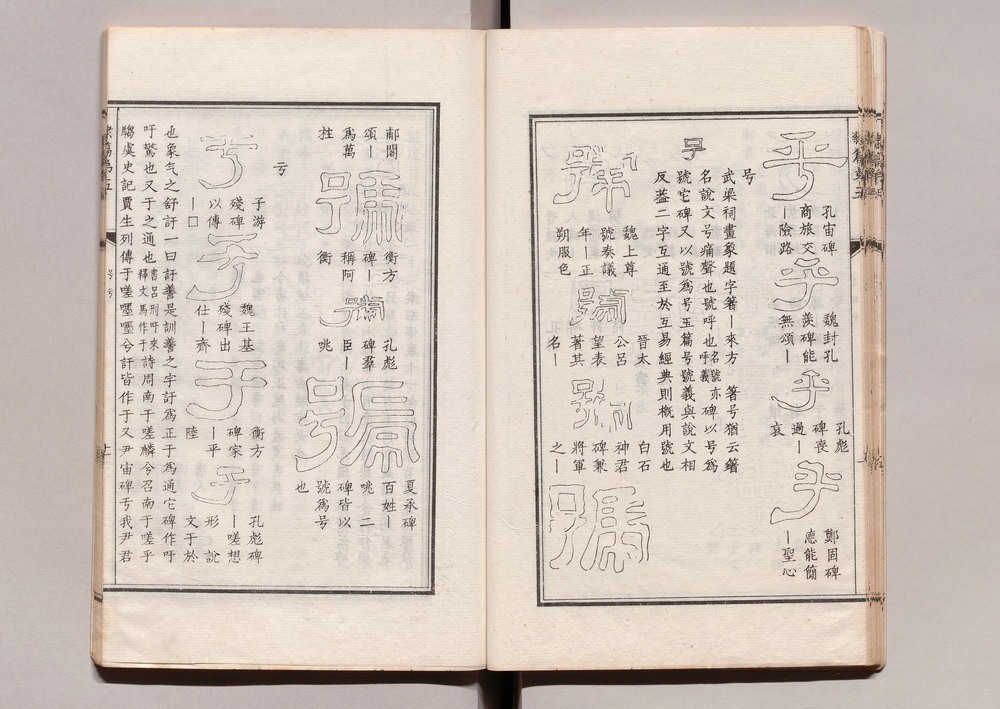 乎
孔宙碑
商旅交
丨險路
乎
魏封孔
羨碑能
無頌丨
乎
孔彪
碑喪
過丨
哀
乎
鄭固碑
應能簡
丨聖心
号
号
武梁祠畫象題字箸丨來方 箸号猶云箸
名說文号痛聲也號呼也名號呼義亦碑以号爲
號它碑又以號爲号玉篇号號義與說文相
反葢二字互通至於互易經典則概用號也
號
魏上尊
號奏議
年丨正
朔服色
號
晉太
公呂
望表
著其
名丨
號
白石
神君
碑兼
將軍
之丨
號
郙閣
頌丨
爲萬
姓
號
衡方
碑丨
稱阿
衡
號
孔彪
碑羣
臣丨
咷
號
夏承碑
百姓丨
咷二
碑皆以
號爲号
也
亏
亏
子游
殘碑
以傳
丨□
于
魏王基
殘碑出
仕丨齊
于
衡方
碑家
丨平
陸
于
孔彪碑
丨嗟想
形丨說
文于於
也象气之舒訏一曰訏謩是訓謩之字訏爲正于爲通它碑作吁
吁驚也又于之通也書呂刑吁來釋文馬作于詩周南于嗟麟兮召南于嗟乎
騶虞史記賈生列傳于嗟嚜嚜兮訏皆作于又尹宙碑亏我尹君